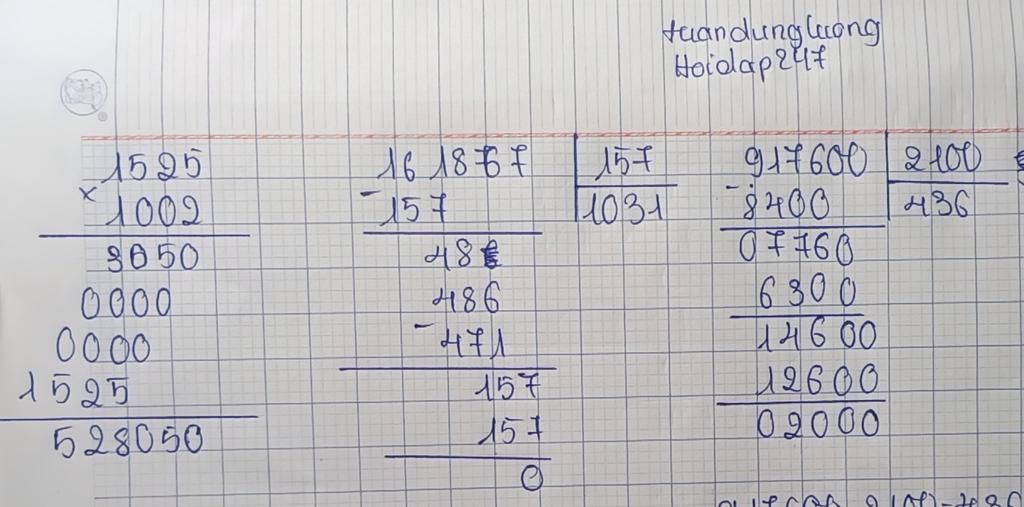 tuandungluong
Hoidap247
1525
x
1002
3050
0000
0000
1525
528050
161867 157
- 157 1031
48
486
- 471
157
157
0
917600 2100
- 8400 436
07760
6300
14600
12600
02000